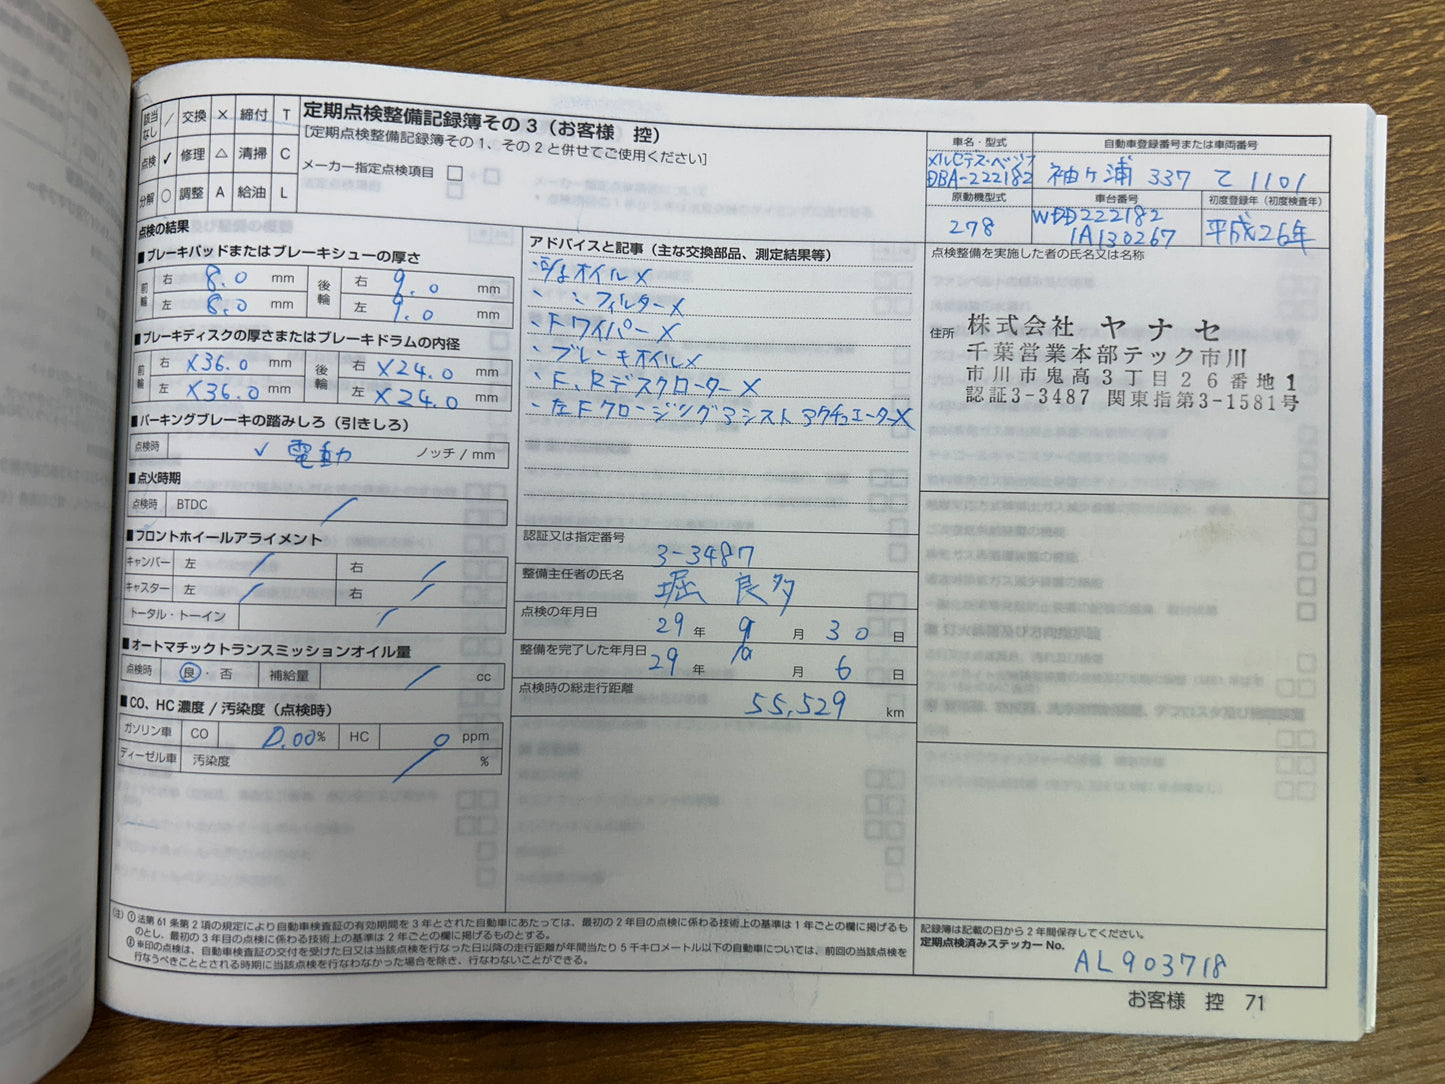 該当なし / 交換 × 締付 T
点検 ✓ 修理 △ 清掃 C
分解 ○ 調整 A 給油 L
定期点検整備記録簿その3（お客様 控）
［定期点検整備記録簿その1、その2と併せてご使用ください］
メーカー指定点検項目 □
車名・型式
メルセデス・ベンツ
DBA-222182
自動車登録番号または車両番号
袖ヶ浦 337 て 1101
原動機型式
278
車台番号
WDD222182
1A130267
初度登録年（初度検査年）
平成26年
点検の結果
■ブレーキパッドまたはブレーキシューの厚さ
前輪 右 8.0 mm 後輪 右 9.0 mm
左 8.0 mm 左 9.0 mm
■ブレーキディスクの厚さまたはブレーキドラムの内径
前輪 右 ×36.0 mm 後輪 右 ×24.0 mm
左 ×36.0 mm 左 ×24.0 mm
■パーキングブレーキの踏みしろ（引きしろ）
点検時 ✓ 電動 ノッチ / mm
■点火時期
点検時 BTDC /
■フロントホイールアライメント
キャンバー 左 / 右 /
キャスター 左 / 右 /
トータル・トーイン /
■オートマチックトランスミッションオイル量
点検時 良・否 補給量 / cc
■CO、HC濃度 / 汚染度（点検時）
ガソリン車 CO 0.00% HC 0 ppm
ディーゼル車 汚染度 / %
アドバイスと記事（主な交換部品、測定結果等）
オイル ×
・ 〃 フィルター ×
・Fワイパー ×
・ブレーキオイル×
・F、Rデスクローター ×
・左Fクロージングアシストアクチュエーター×
認証又は指定番号
3-3487
整備主任者の氏名
堀 良多
点検の年月日
29 年 9 月 30 日
整備を完了した年月日
29 年 10 月 6 日
点検時の総走行距離
55,529 km
点検整備を実施した者の氏名又は名称
住所
株式会社 ヤナセ
千葉営業本部テック市川
市川市鬼高3丁目26番地1
認証3-3487 関東指第3-1581号
（注）①法第61条第2項の規定により自動車検査証の有効期間を3年とされた自動車にあたっては、最初の2年目の点検に係わる技術上の基準は1年ごとの欄に掲げるも
のとし、最初の3年目の点検に係わる技術上の基準は2年ごとの欄に掲げるものとする。
②※印の点検は、自動車検査証の交付を受けた日又は当該点検を行なった日以降の走行距離が年間当たり5千キロメートル以下の自動車については、前回の当該点検を
行なうべきこととされる時期に当該点検を行なわなかった場合を除き、行なわないことができる。
記録簿は記載の日から2年間保存してください。
定期点検済みステッカーNo.
AL903718
お客様 控 71